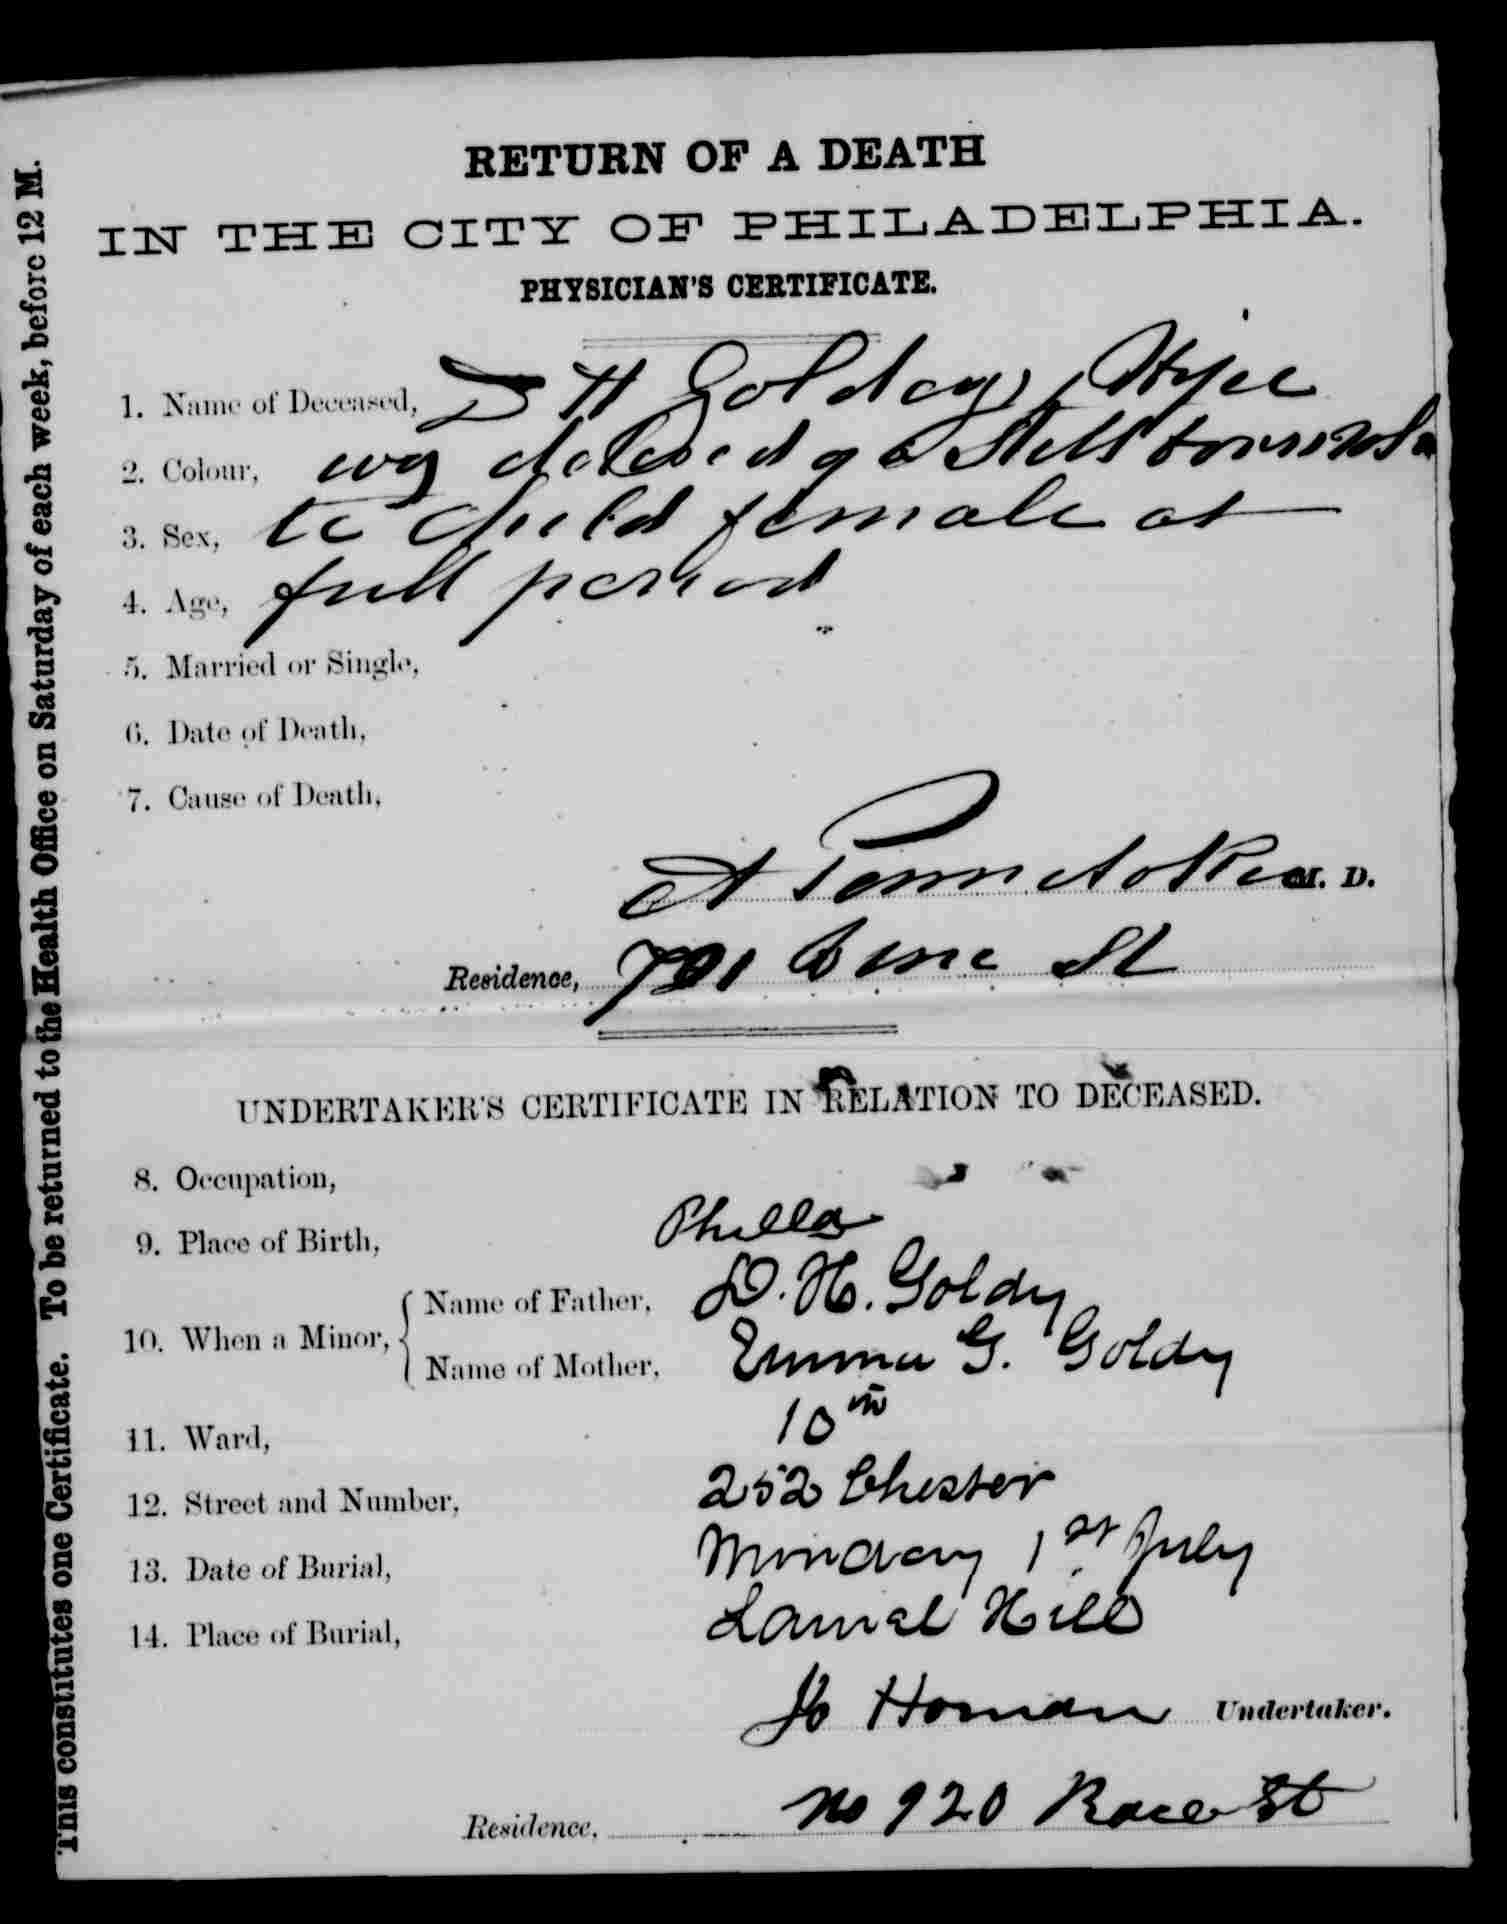 RETURN OF A DEATH
IN THE CITY OF PHILADELPHIA.
PHYSICIAN'S CERTIFICATE.
1. Name of Deceased, D H Golday, Wife
2. Colour, was delivered of a Still born Whi
3. Sex, te Child female at
4. Age, full period
5. Married or Single,
6. Date of Death,
7. Cause of Death,
M. D.
Residence, St
UNDERTAKER'S CERTIFICATE IN RELATION TO DECEASED.
8. Occupation,
9. Place of Birth, Philla
10. When a Minor, { Name of Father, D. H. Goldy
Name of Mother, Emma G. Goldy
11. Ward, 10th
12. Street and Number, 252 Chester
13. Date of Burial, Monday 1st July
14. Place of Burial, Laurel Hill
Jo Homan Undertaker.
Residence, No 920 Race St
This constitutes one Certificate. To be returned to the Health Office on Saturday of each week, before 12 M.